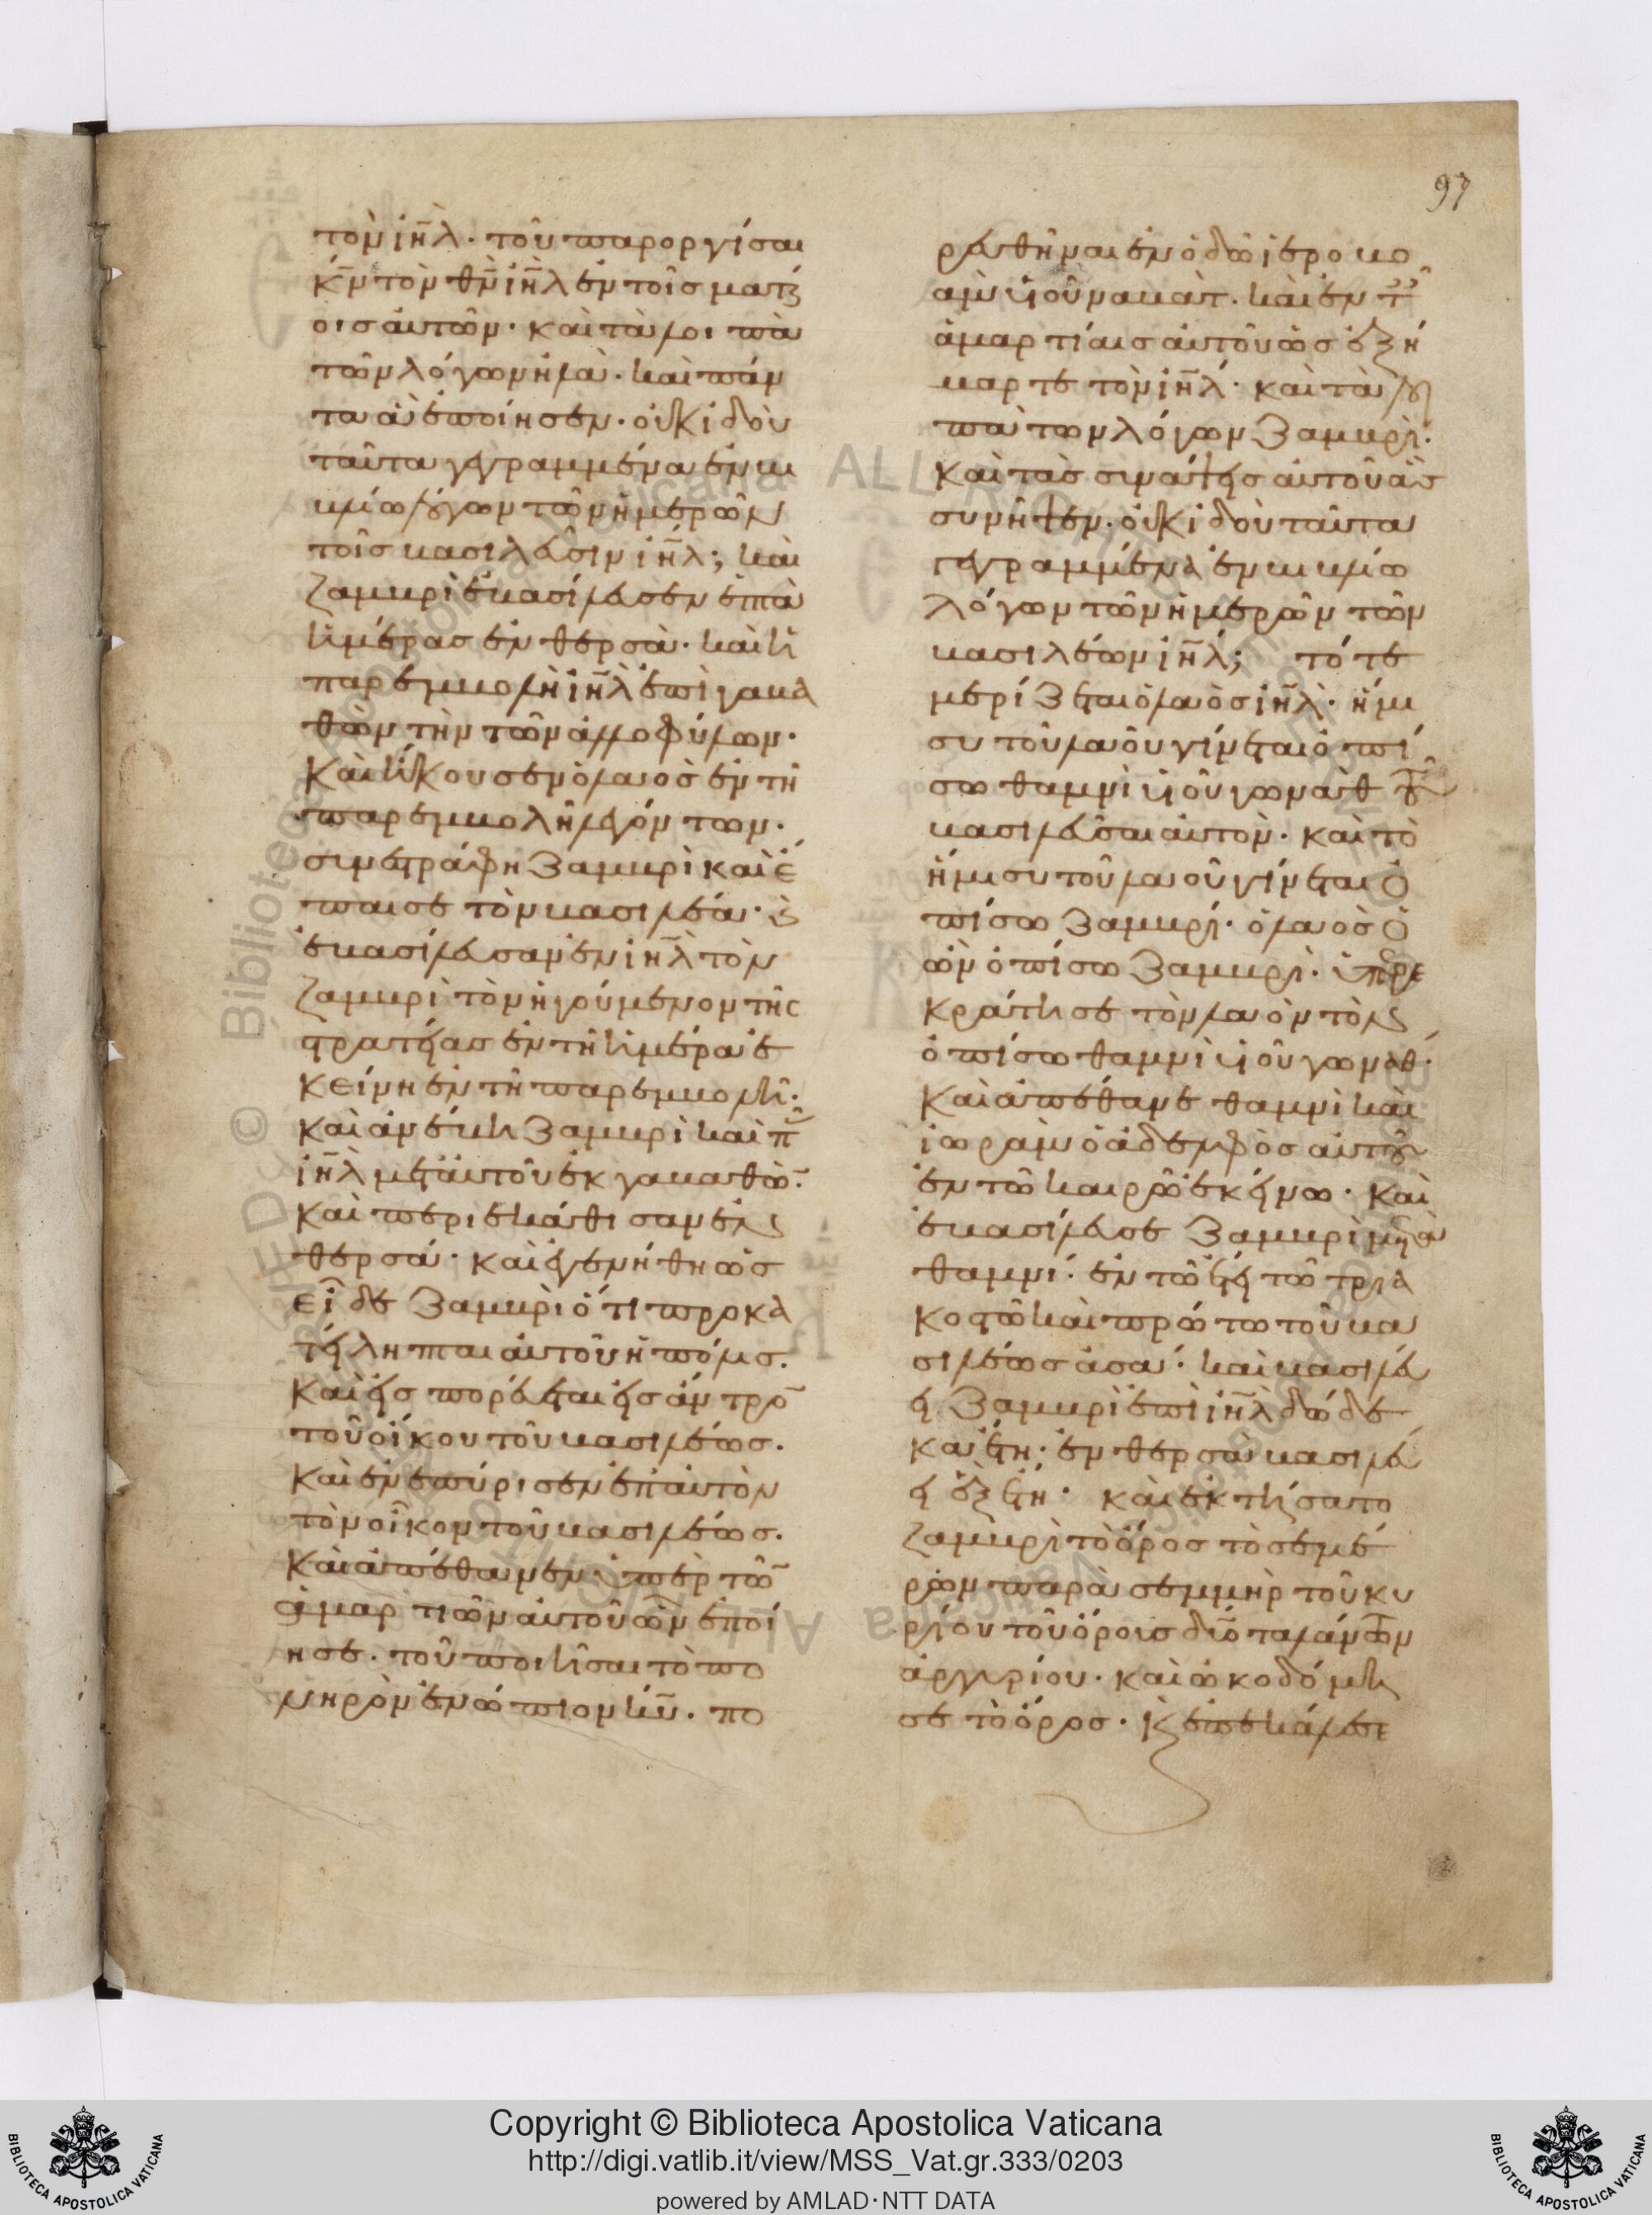 97
τὸν ἰη̅λ· τοῦ παροργίσαι
κ̅ν τὸν θ̅ν ἰη̅λ ἐν τοῖς ματαί
οις αὐτῶν· καὶ τὰ λοιπὰ
τῶν λόγων ἠλὰ· καὶ πάν
τα ἃ ἐποίησεν· οὐκ ἰδοὺ
ταῦτα γεγραμμένα ἐν βι
βλίω λόγων τῶν ἡμερῶν
τοῖς βασιλεῦσιν ἰη̅λ; καὶ
ζαμβρὶ ἐβασίλευσεν ἑπτὰ
ἡμέρας ἐν θερσὰ· καὶ ἡ
παρεμβολὴ ἰη̅λ ἐπὶ γαβα
θὼν τὴν τῶν ἀλλοφύλων·
Καὶ ἤκουσεν ὁ λαὸς ἐν τῆ
παρεμβολῆ λεγόντων·
συνεστράφη ζαμβρὶ καὶ ἔ
παισε τὸν βασιλέα· καὶ
ἐβασίλευσαν ἐν ἰη̅λ τὸν
ζαμβρὶ τὸν ἡγούμενον τῆς
στρατείας ἐν τῆ ἡμέρα ἐ
κείνη ἐν τῆ παρεμβολῆ·
Καὶ ἀνέβη ζαμβρὶ καὶ π̅
ἰη̅λ μετ αὐτοῦ ἐκ γαβαθὼ̅·
Καὶ περιεκάθισαν ἐν
θερσά· καὶ ἐγενήθη ὡς
εἶδε ζαμβρὶ ὅτι προκα
τείληπται αὐτοῦ ἡ πόλις·
Καὶ εἰσπορεύεται εἰς ἄντρο̅
τοῦ οἴκου τοῦ βασιλέως·
Καὶ ἐνεπύρισεν ἐπ αὐτὸν
τὸν οἶκον τοῦ βασιλέως·
Καὶ ἀπέθανεν ὑπὲρ τῶ̅
ἁμαρτιῶν αὐτοῦ ὧν ἐποί
ησε· τοῦ ποιῆσαι τὸ πο
νηρὸν ἐνώπιον κ̅υ· πο
ρευθῆναι ἐν ὁδῶ ἱεροβο
ὰμ υἱοῦ ναβὰτ· καὶ ἐν τ
ἁμαρτίαις αὐτοῦ ὡς ἐξή
μαρτε τὸν ἰη̅λ· καὶ τὰ λοι
πὰ τῶν λόγων ζαμβρὶ·
Καὶ τὰς συνάψεις αὐτοῦ ἃς
συνῆψεν· οὐκ ἰδοὺ ταῦτα
γεγραμμένα ἐν βιβλίω
λόγων τῶν ἡμερῶν τῶν
βασιλέων ἰη̅λ; τότε
μερίζεται ὁ λαὸς ἰη̅λ· ἥμι
συ τοῦ λαοῦ γίνεται ὀπί
σω θαμνὶ υἱοῦ γωνὰθ τοῦ
βασιλεῦσαι αὐτὸν· καὶ τὸ
ἥμισυ τοῦ λαοῦ γίνεται ὀ
πίσω ζαμβρί· ὁ λαὸς ὁ
ὢν ὀπίσω ζαμβρὶ· ὑπερε
κράτησε τὸν λαὸν τὸν
ὀπίσω θαμνὶ υἱοῦ γωνάθ·
Καὶ ἀπέθανε θαμνὶ καὶ
ἰωρὰμ ὁ ἀδελφὸς αὐτοῦ
ἐν τῶ καιρῶ ἐκείνω· Καὶ
ἐβασίλευσε ζαμβρὶ μετὰ
θαμνί· ἐν τῶ ἔτει τῶ τρια
κοστῶ καὶ πρώτω τοῦ βα
σιλέως ἀσά· καὶ βασιλεύ
ει ζαμβρὶ ἐπὶ ἰη̅λ δώδε
κα ἔτη· ἐν θερσὰ βασιλεύ
ει ἓξ ἔτη· καὶ ἐκτήσατο
ζαμβρὶ τὸ ὄρος τὸ σεμέ
ρὼν παρὰ σεμμὴρ τοῦ κυ
ρίου τοῦ ὄρους δύο ταλάντων
ἀργυρίου· καὶ ὠκοδόμη
σε τὸ ὄρος· κ, ἐπεκάλεσε
Copyright © Biblioteca Apostolica Vaticana
http://digi.vatlib.it/view/MSS_Vat.gr.333/0203
powered by AMLAD·NTT DATA
BIBLIOTECA APOSTOLICA VATICANA
BIBLIOTECA APOSTOLICA VATICANA